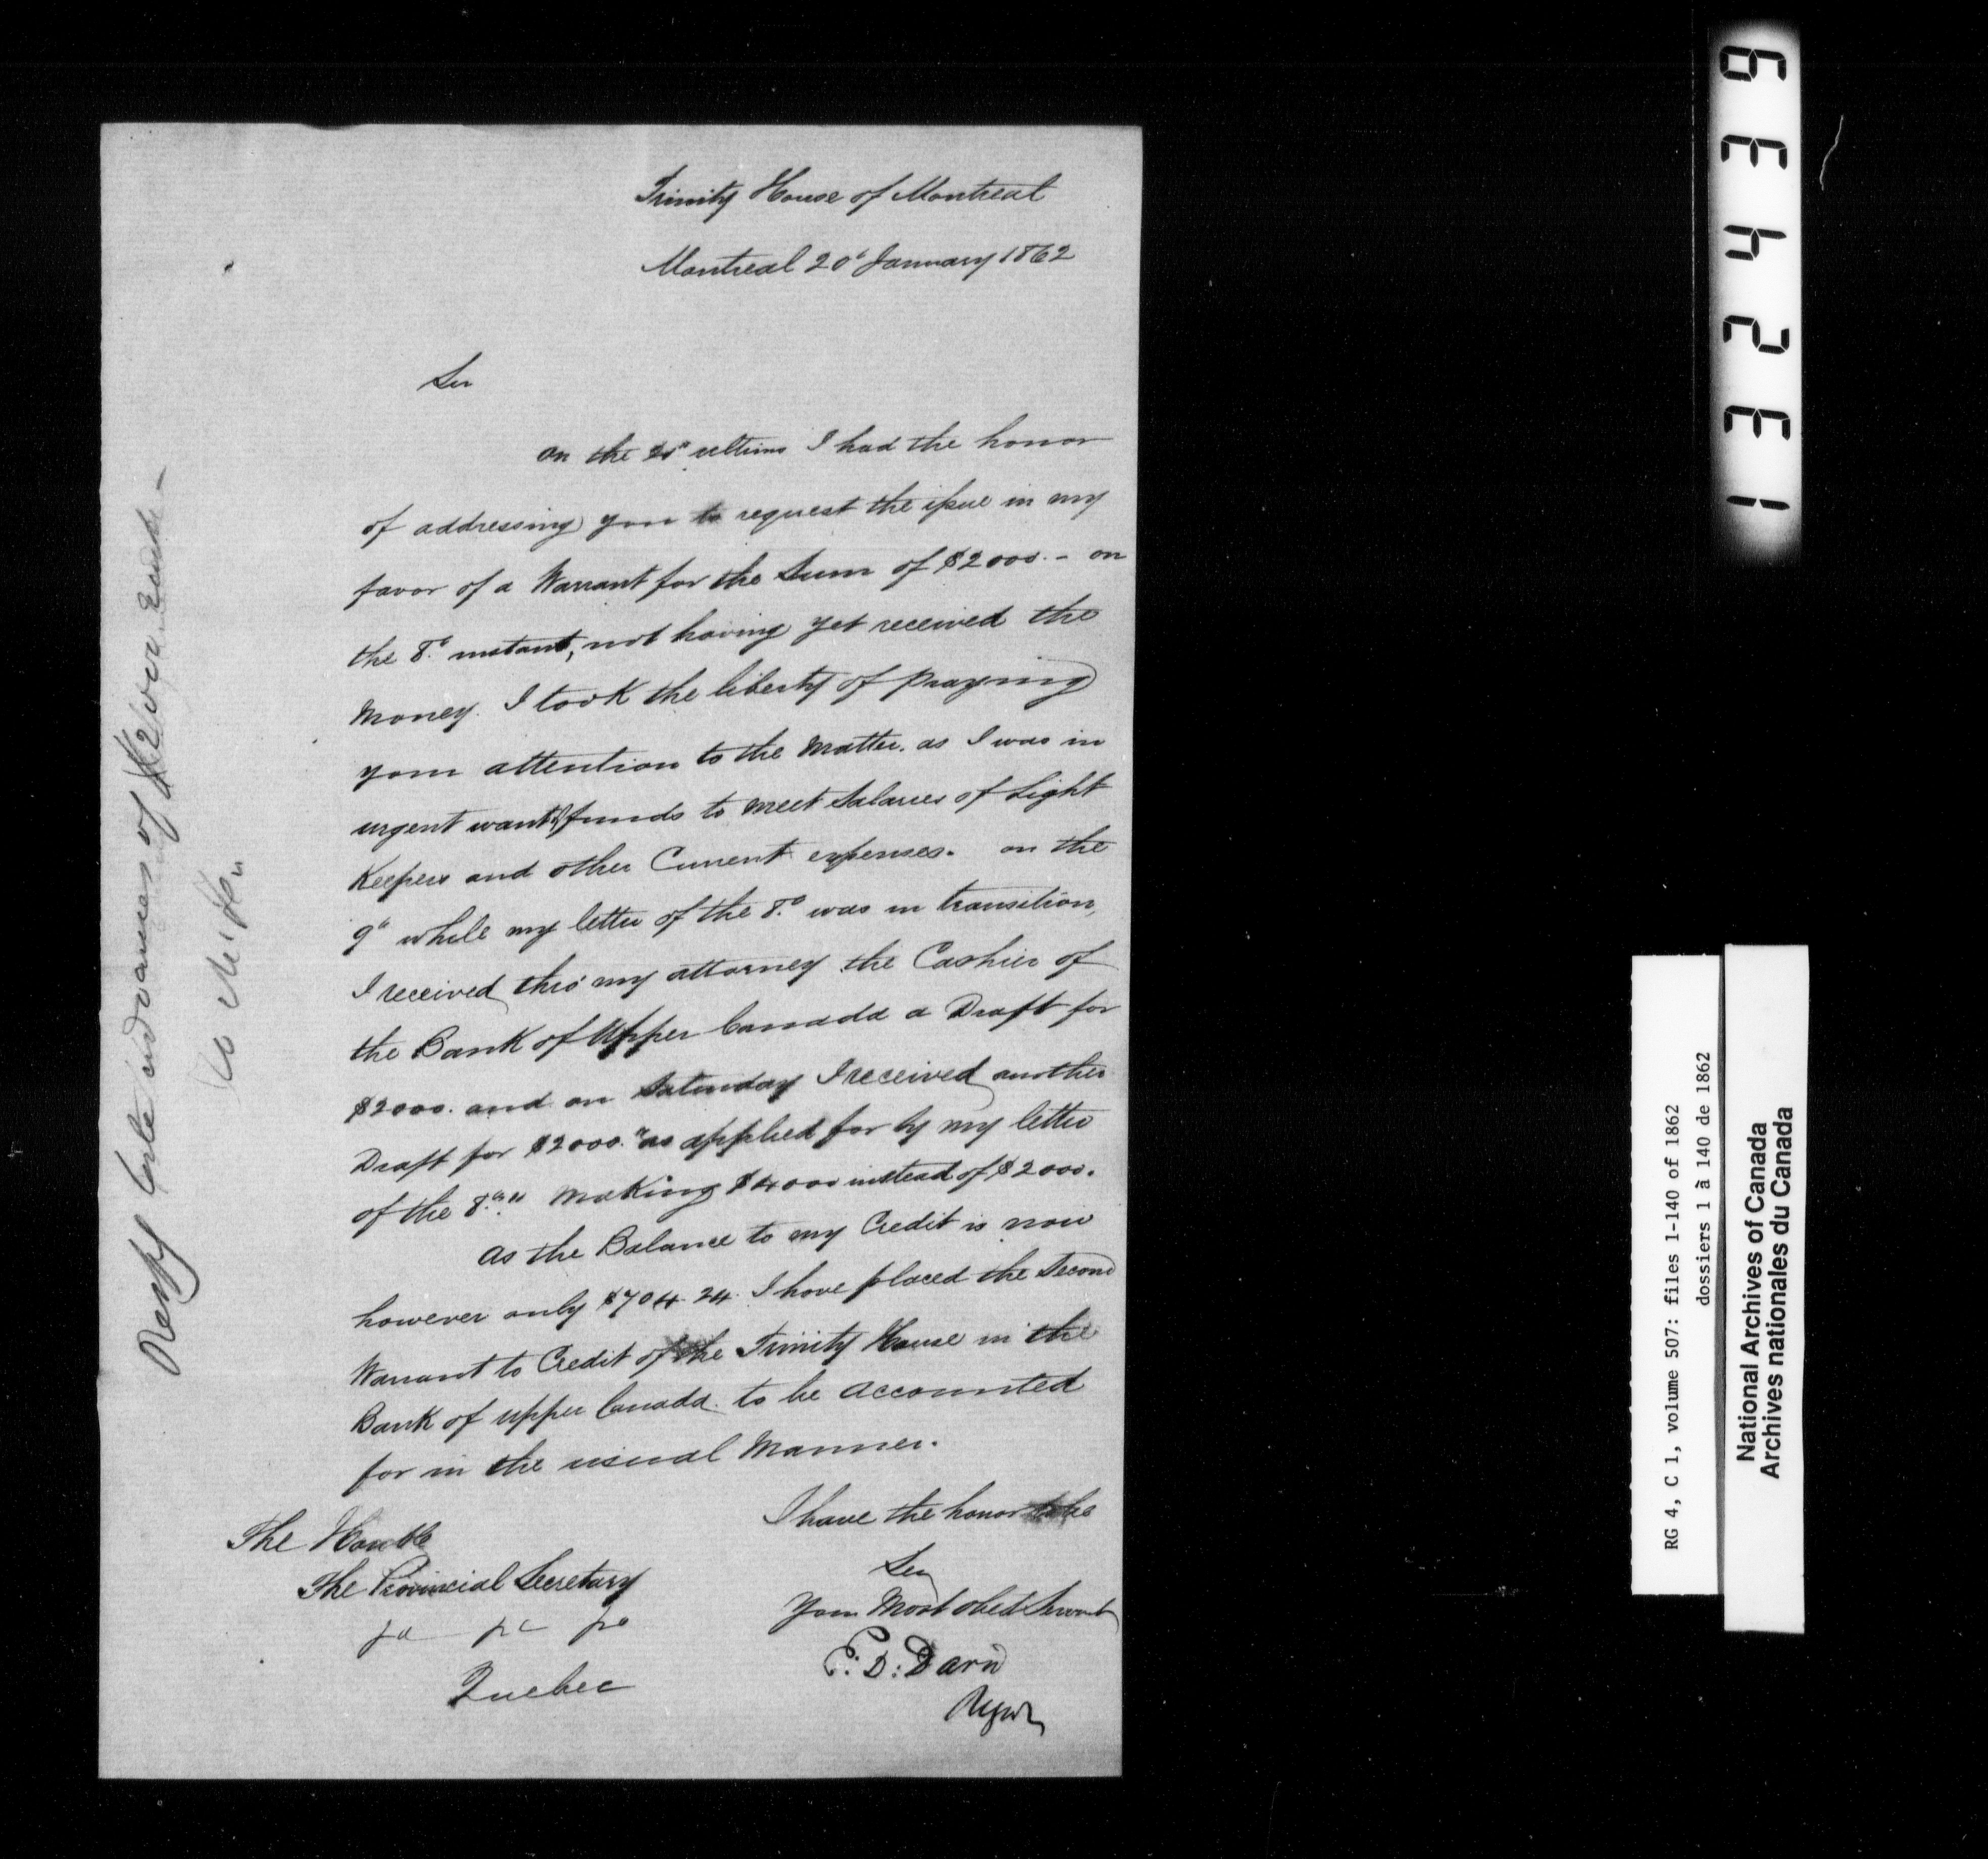 Trinity House of Montreal
Montreal 20th January 1862
Sir
on the ultimo I had the honor
of addressing you to request the issue in my
favor of a Warrant for the Sum of $2000.- on
the 8th instant, not having yet received the
Money. I took the liberty of praying
your attention to the Matter. as I was in
urgent want of funds to meet Salaries of Light
Keepers and other Current expenses. on the
9th while my letter of the 8th was in transition,
I received thro' my attorney the Cashier of
the Bank of Upper Canada a Draft for
$2000. and on Saturday I received another
Draft for $2000. "as applied for by my letter
of the 8th" making $4000 instead of $2000.
As the Balance to my Credit is now
however only $704.24. I have placed the Second
Warrant to Credit of the Trinity House in the
Bank of Upper Canada. to be accounted
for in the usual Manner.
I have the honor to be
Sir
Your Most obed Servant
E: D: David
The Honble
The Provincial Secretary
Quebec
advances of $2000 each -
RG 4, C 1, volume 507: files 1-140 of 1862
dossiers 1 à 140 de 1862
National Archives of Canada
Archives nationales du Canada
132439